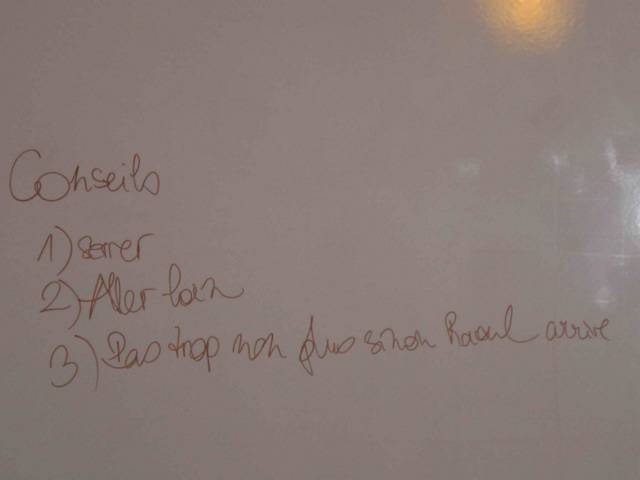 Conseils
1) serrer
2) Aller loin
3) Pas trop non plus sinon Raoul arrive